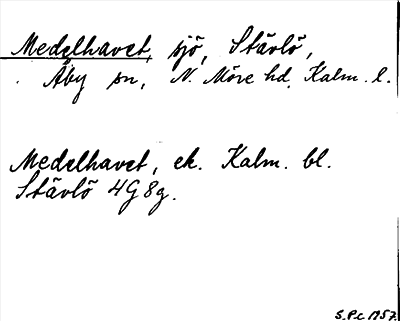 Medelhavet, sjö, Stävlö,
Åby sn, N. Möre hd, Kalm. l.
Medelhavet, ek. Kalm. bl.
Stävlö 4G 8g.
1957.